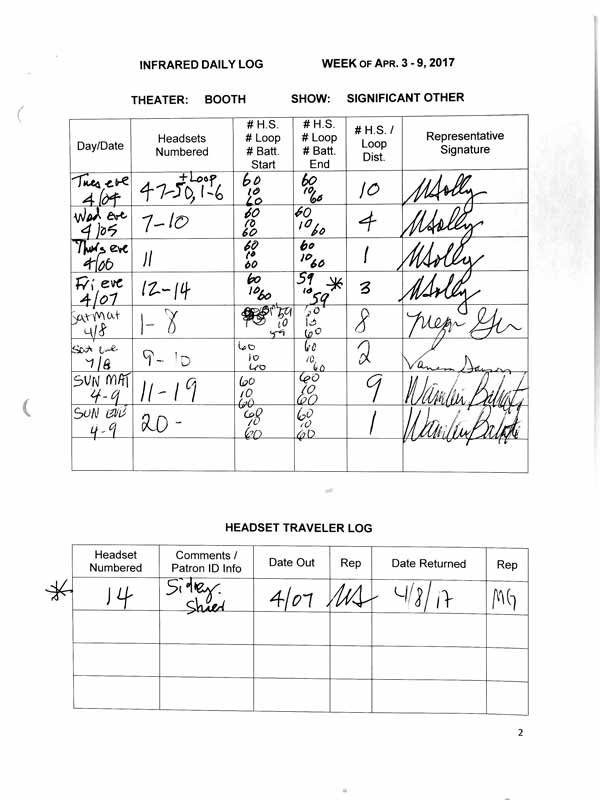 INFRARED DAILY LOG WEEK OF APR. 3 - 9, 2017
THEATER: BOOTH SHOW: SIGNIFICANT OTHER
Day/Date Headsets Numbered # H.S. # Loop # Batt. Start # H.S. # Loop # Batt. End # H.S. / Loop Dist. Representative Signature
Tues eve 4/04 47-50, 1-6 + Loop 60 10 60 60 10 60 10
Wed eve 4/05 7-10 60 10 60 60 10 60 4
Thurs eve 4/06 11 60 10 60 60 10 60 1
Fri eve 4/07 12-14 60 10 60 59 10 59 * 3
Sat Mat 4/8 1-8 59 10 59 60 10 60 8
Sat Eve 4/8 9-10 60 10 60 60 10 60 2
SUN MAT 4-9 11-19 60 10 60 60 10 60 9
SUN EVE 4-9 20- 60 10 60 60 10 60 1
HEADSET TRAVELER LOG
Headset Numbered Comments / Patron ID Info Date Out Rep Date Returned Rep
* 14 4/07 4/8/17 MG
2